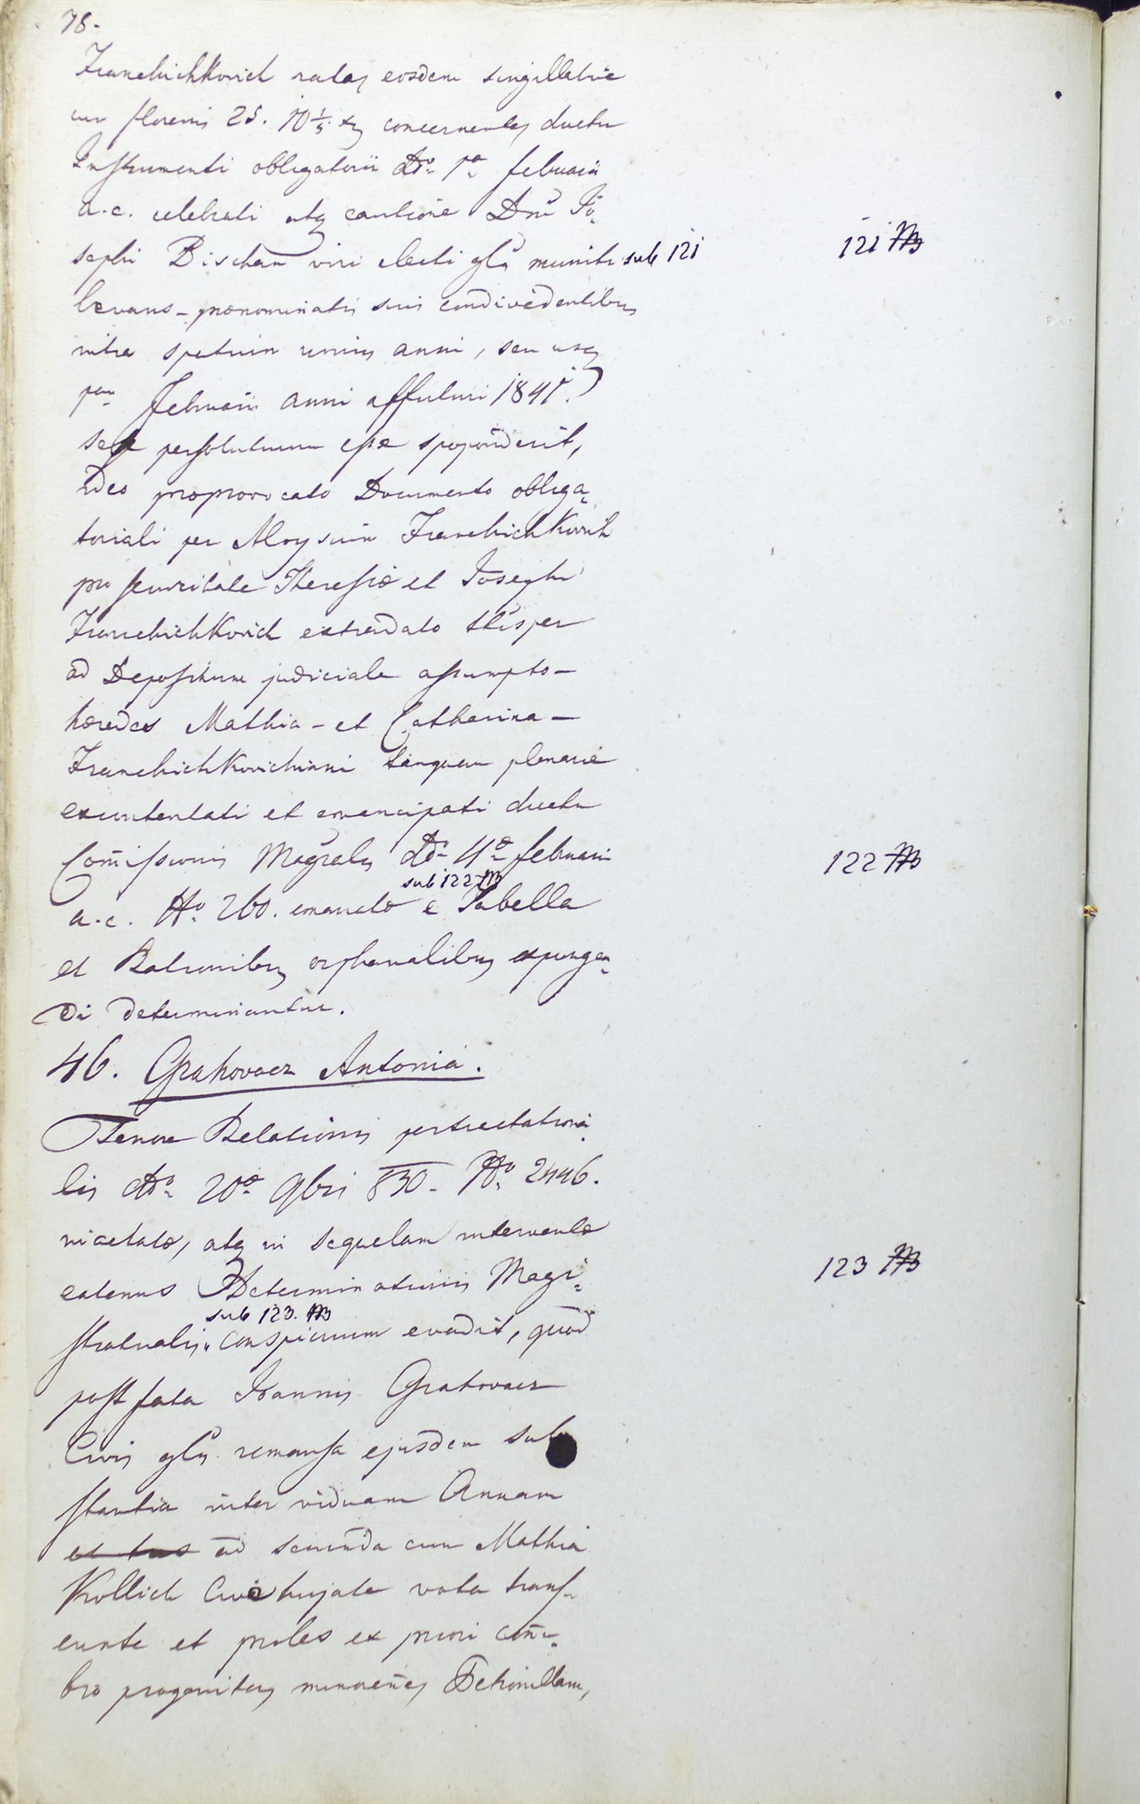 78.
Franchichkovich ratas eosdem singillative
cum florenis 25. 10 1/5 xr concernentes ductu
Instrumenti obligatorii ddo 1a februarii
a.c. celebrati atq cautione Dni Jo-
sephi Bischan viri electi gls muniti sub 121
levans – praenominatis suis condividentibus
intra spatium unius anni, seu usq
1am Februarii anni affuturi 1841.
se persoluturum esse spoponderit,
Ideo proprovocato Documento obliga-
toriali per Aloysium Franchichkovich
pro securitate Theresiae et Josephi
Franchichkovich extradato thisper
ad Depositum judiciale assumpto –
haeredes Mathia – et Catharina –
Franchichkovichiani tanquam plenarie
excontentati et emancipati ductu
Comissionis Magralis ddo 4a februarii
sub 122
a.c. No 260. emanatae e Tabella
et Rationibus orphanalibus expungen-
di determinantur.
46. Grahovacz Antonia.
Tenore Relationis pertractationa-
lis ddo 20a 9bris 830. No 2446.
niactatae, atq in sequelam interventae
eatenus Determinationis Magi-
sub 123.
stratualis conspicuum evadit, quod
post fata Joannis Grahovacz
Civis gls remansa ejusdem sub
stantia inter viduam Annam
et tres ad secunda cum Mathia
Kollich Cive hujate vota trans-
eunte et proles ex priori conu-
bio progenitas minorenes Petronillam,
121
122
123